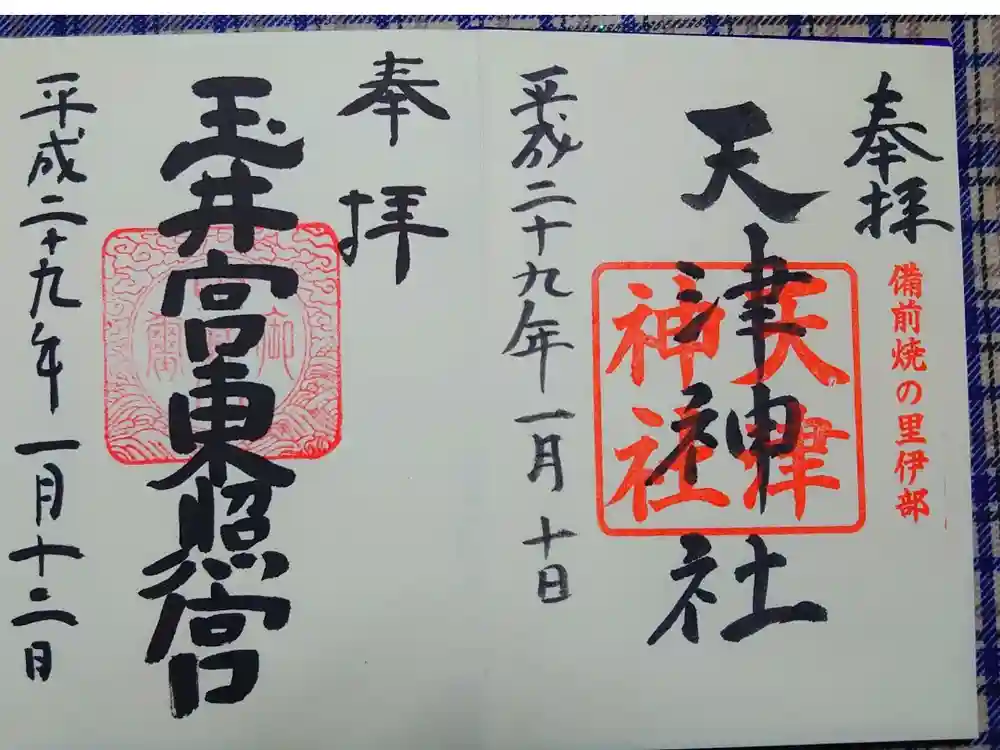 奉拝
備前焼の里伊部
天津神社
天津神社
平成二十九年一月十日
奉拝
玉井宮東照宮
平成二十九年一月十二日